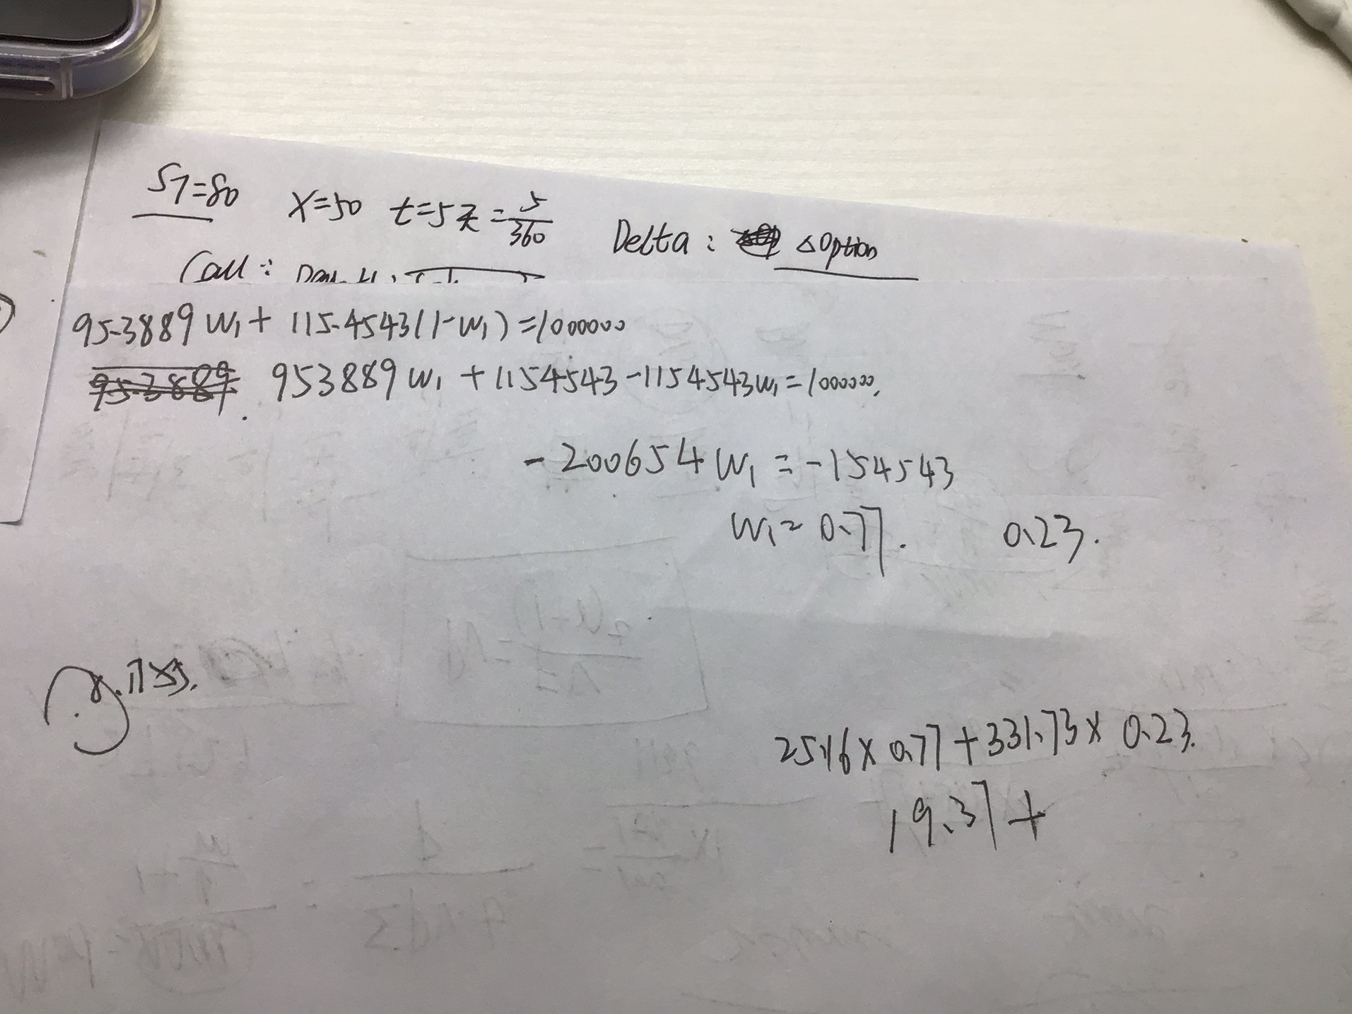 ST=80 X=50 t=5天=5/360 Delta: ΔOption
Call:
95.3889W₁+ 115.4543(1-W₁)=1000000
953889W₁ +1154543-1154543W₁=1000000.
-200654W₁ =-154543
W₁= 0.77. 0.23.
25.16× 0.77+331.73× 0.23.
19.37+